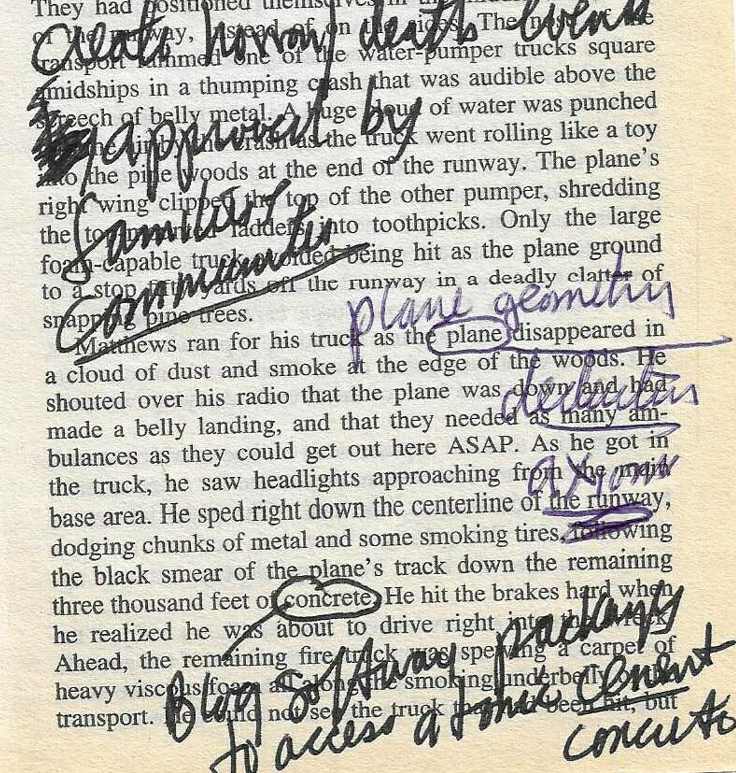 They had positioned themselves in the
of the runway, instead of on the sides. The nose of the
transport rammed one of the water-pumper trucks square
amidships in a thumping crash that was audible above the
screech of belly metal. A huge of water was punched
the air by the crash as the truck went rolling like a toy
into the pine woods at the end of the runway. The plane's
right wing clipped the top of the other pumper, shredding
the ladders into toothpicks. Only the large
foam-capable truck avoided being hit as the plane ground
to a stop yards off the runway in a deadly clatter of
snapping pine trees.
Matthews ran for his truck as the plane disappeared in
a cloud of dust and smoke at the edge of the woods. He
shouted over his radio that the plane was down and had
made a belly landing, and that they needed as many am-
bulances as they could get out here ASAP. As he got in
the truck, he saw headlights approaching from the main
base area. He sped right down the centerline of the runway,
dodging chunks of metal and some smoking tires, following
the black smear of the plane's track down the remaining
three thousand feet of concrete. He hit the brakes hard when
he realized he was about to drive right into the wreck.
Ahead, the remaining fire truck was spewing a carpet of
heavy viscous foam all along the smoking underbelly
transport. He could not see the truck that had been hit, but
Create horror/death events
approved by
families
communities
plane geometry
deduction
axioms
Blog software packages
to access atomic cement
concrete